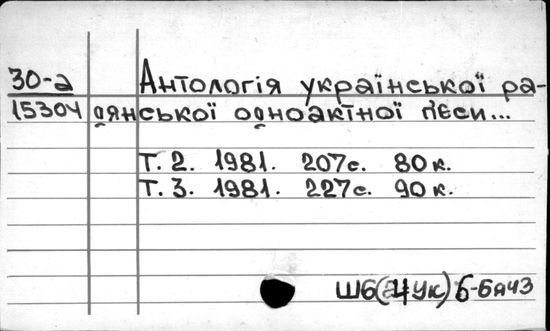 30-а Антологія української ра-
15304 дянської одноактної п'єси...
Т. 2. 1981. 207с. 80к.
Т. 3. 1981. 227с. 90к.
Ш6(24Ук)6-6я43